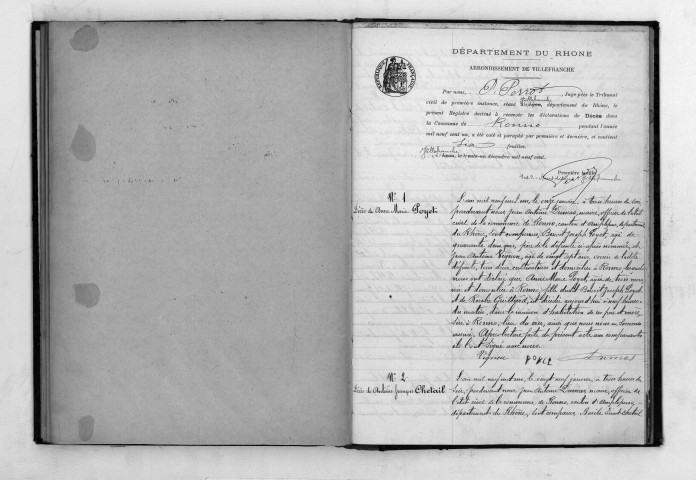 DÉPARTEMENT DU RHONE
ARRONDISSEMENT DE VILLEFRANCHE
RÉPUBLIQUE FRANÇAISE
Par nous, P. Perrot, Juge près le Tribunal
civil de première instance, séant Villefranche, département du Rhône, le
présent Registre destiné à recevoir les déclarations de Décès dans
la Commune de Ronno pendant l'année
mil neuf cent un, a été coté et paraphé par première et dernière, et contient
six feuilles.
Villefranche, le trente-un décembre mil neuf cent.
Première feuille
N° 1
Décès de Anne Marie Poyet
L'an mil neuf cent un, le onze janvier, à trois heures du soir,
pardevant nous Jean Antoine Dumas, maire, officier de l'état
civil de la commune de Ronno, canton d'Amplepuis, département
du Rhône, sont comparus, Benoit Joseph Poyet, âgé de
quarante deux ans, père de la défunte ci-après nommée, et
Jean Antoine Vignon, âgé de vingt sept ans, voisin de ladite
défunte, tous deux cultivateurs et domiciliés à Ronno, lesquels
nous ont déclaré que Anne Marie Poyet, âgée de trois mois
née et domiciliée à Ronno, fille dudit Benoit Joseph Poyet
et de Rosalie, est décédée aujourd'hui à neuf heures
du matin, dans la maison d'habitation de ses père et mère,
sise à Ronno, ainsi que nous nous en sommes
assuré. Après lecture faite du présent acte aux comparants
ils l'ont signé avec nous.
Vignon Poyet Dumas
N° 2
Décès de Antoine François Cheteril
L'an mil neuf cent un, le vingt neuf janvier, à trois heures du
soir, pardevant nous Jean Antoine Dumas, maire, officier de
l'état civil de la commune de Ronno, canton d'Amplepuis,
département du Rhône, sont comparus,